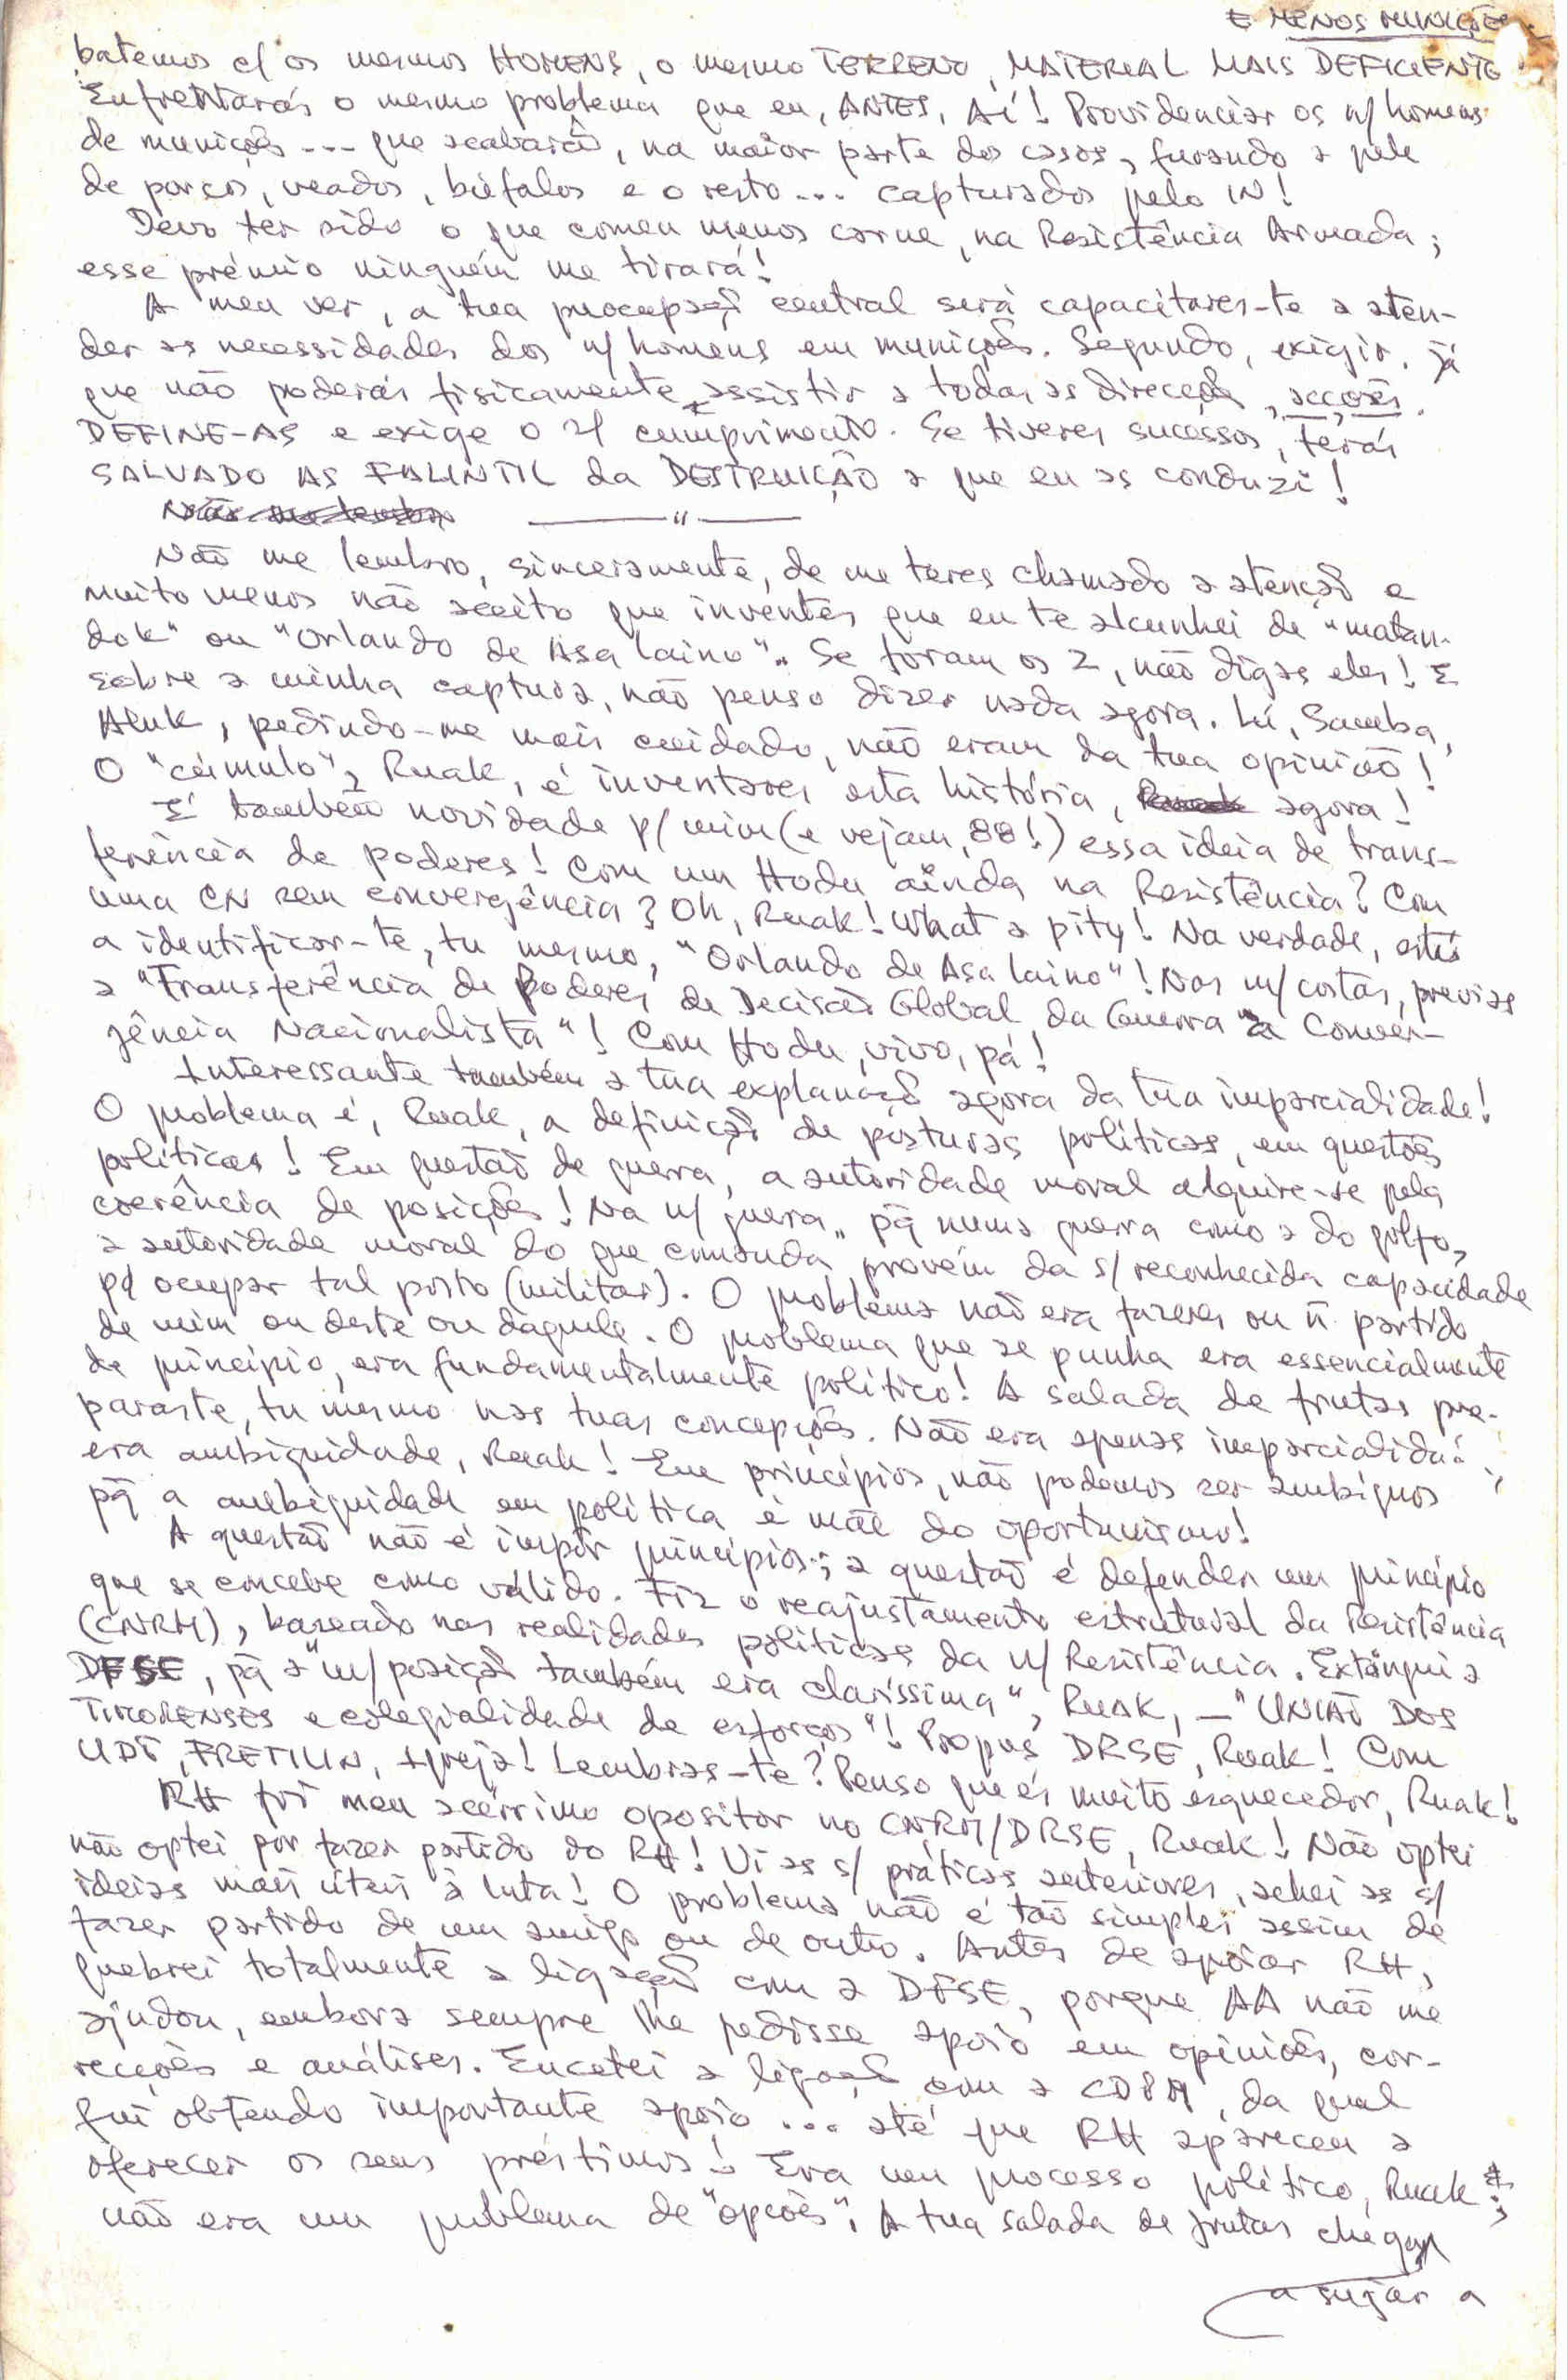 E MENOS MUNIÇÕES
batemos c/ os mesmos HOMENS, o mesmo TERRENO, MATERIAL MAIS DEFICIENTE
Enfrentarás o mesmo problema que eu, ANTES, Aí! Providenciar os n/ homens
de munições --- que acabarão, na maior parte dos casos, furando a pele
de porcos, veados, búfalos e o resto... capturados pelo IN!
Devo ter sido o que comeu menos carne, na Resistência Armada;
esse prémio ninguém me tirará!
A meu ver, a tua preocupação central será capacitares-te a aten-
der as necessidades dos n/ homens em munições. Segundo, exigir, já
que não poderás fisicamente assistir a todas as direcções, acções.
DEFINE-AS e exige o s/ cumprimento. Se tiveres sucessos, terás
SALVADO AS FALINTIL da DESTRUIÇÃO a que eu as conduzi!
———"———
Não me lembro, sinceramente, de me teres chamado a atenção e
muito menos não aceito que inventes que eu te alcunhei de "matan-
dok" ou "Orlando de Asa laino".. Se foram os 2, não digas eles! E
sobre a minha captura, não penso dizer nada agora. Lú, Samba,
Aluk, pedindo-me mais cuidado, não eram da tua opinião!
O "cúmulo", Ruak, é inventares esta história, agora!
É também novidade p/ mim (e vejam, 88!) essa ideia de trans-
ferência de poderes! Com um Hodu ainda na Resistência? Com
uma CN sem convergência? Oh, Ruak! What a pity! Na verdade, estás
a identificar-te, tu mesmo, "Orlando de Asa laino"! Nas m/ costas, previas
a "Transferência de Poderes de Decisão Global da Guerra à Conver-
gência Nacionalista"! Com Hodu, vivo, pá!
Interessante também a tua explanação agora da tua imparcialidade!
O problema é, Ruak, a definição de posturas políticas, em questões
políticas! Em questão de guerra, a autoridade moral adquire-se pela
coerência de posições! Na n/ guerra, pq numa guerra como a do golfo,
a autoridade moral do que comanda provém da s/ reconhecida capacidade
p/ ocupar tal posto (militar). O problema não era fazeres ou ñ partido
de mim ou deste ou daquele. O problema que se punha era essencialmente
de princípio, era fundamentalmente político! A salada de frutas pre-
paraste, tu mesmo nas tuas concepções. Não era apenas imparcialida:
era ambiguidade, Ruak! Em princípios, não podemos ser ambíguos
pq a ambiguidade em política é mãe do oportunismo!
A questão não é impôr princípios; a questão é defender um princípio
que se concebe como válido. Fiz o reajustamento estrutural da Resistência
(CNRM), baseado nas realidades políticas da n/ Resistência. Extingui a
DFSE, pq a "m/ posição também era claríssima", Ruak, — "UNIÃO DOS
TIMORENSES e colegialidade de esforços"! Propus DRSE, Ruak! Com
UDT, FRETILIN, Igreja! Lembras-te? Penso que és muito esquecedor, Ruak!
RH foi meu acérrimo opositor no CNRM/DRSE, Ruak! Não optei
não optei por fazer partido do RH! Vi as s/ práticas anteriores, achei as s/
ideias mais úteis à luta! O problema não é tão simples assim de
fazer partido de um amigo ou de outro. Antes de apoiar RH,
quebrei totalmente a ligação com a DFSE, porque AA não me
ajudou, embora sempre lhe pedisse apoio em opiniões, cor-
recções e análises. Encetei a ligação com a CDPM, da qual
fui obtendo importante apoio ... até que RH apareceu a
oferecer os seus préstimos! Era um processo político, Ruak;
não era um problema de "opções". A tua salada de frutas chegou
a sujar a